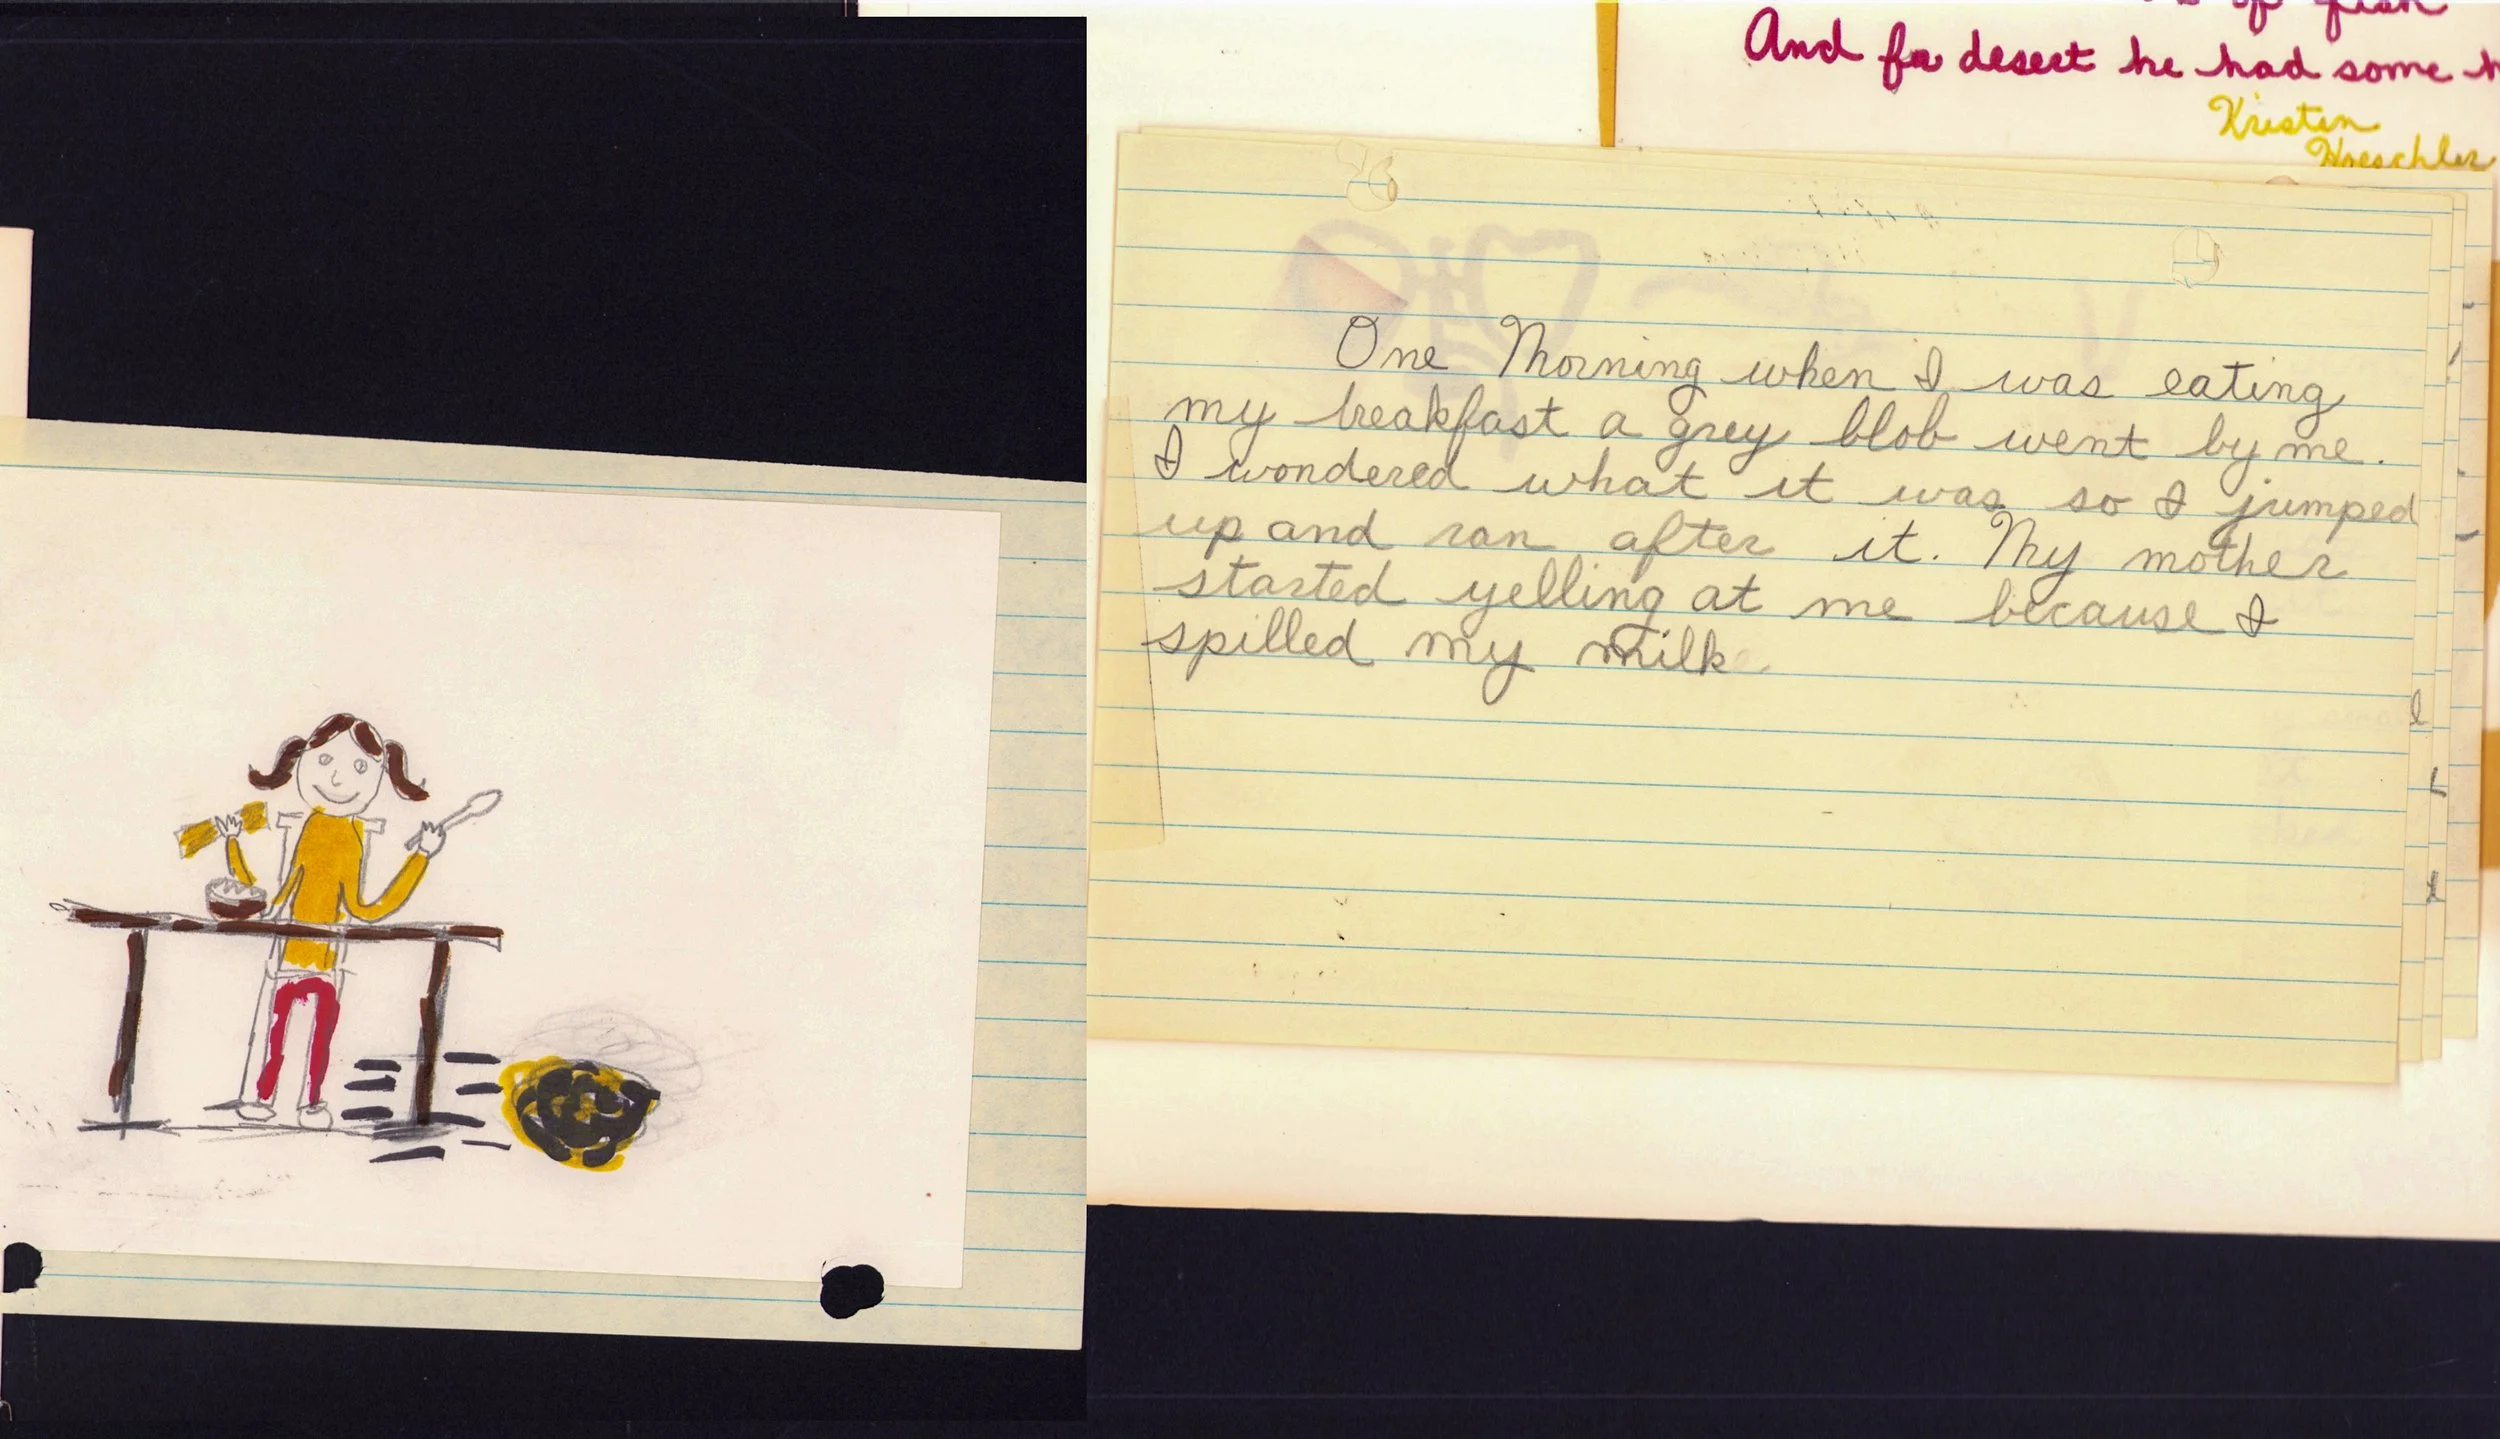 And for desert he had some
Kristen
Hoeschler
One Morning when I was eating
my breakfast a grey blob went by me.
I wondered what it was so I jumped
up and ran after it. My mother
started yelling at me because I
spilled my milk